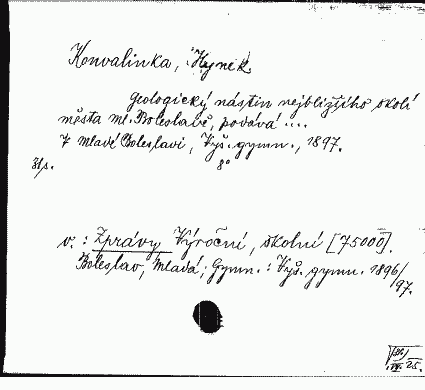 Konvalinka, Hynek
Geologický nástin nejbližšího okolí
města Ml. Boleslavě, podává ....
V Mladé Boleslavi, Vyš. gymn., 1897.
31s. 8°
v.: Zprávy Výroční, školní [75000].
Boleslav, Mladá; Gymn.: Vyš. gymn. 1896/
97.